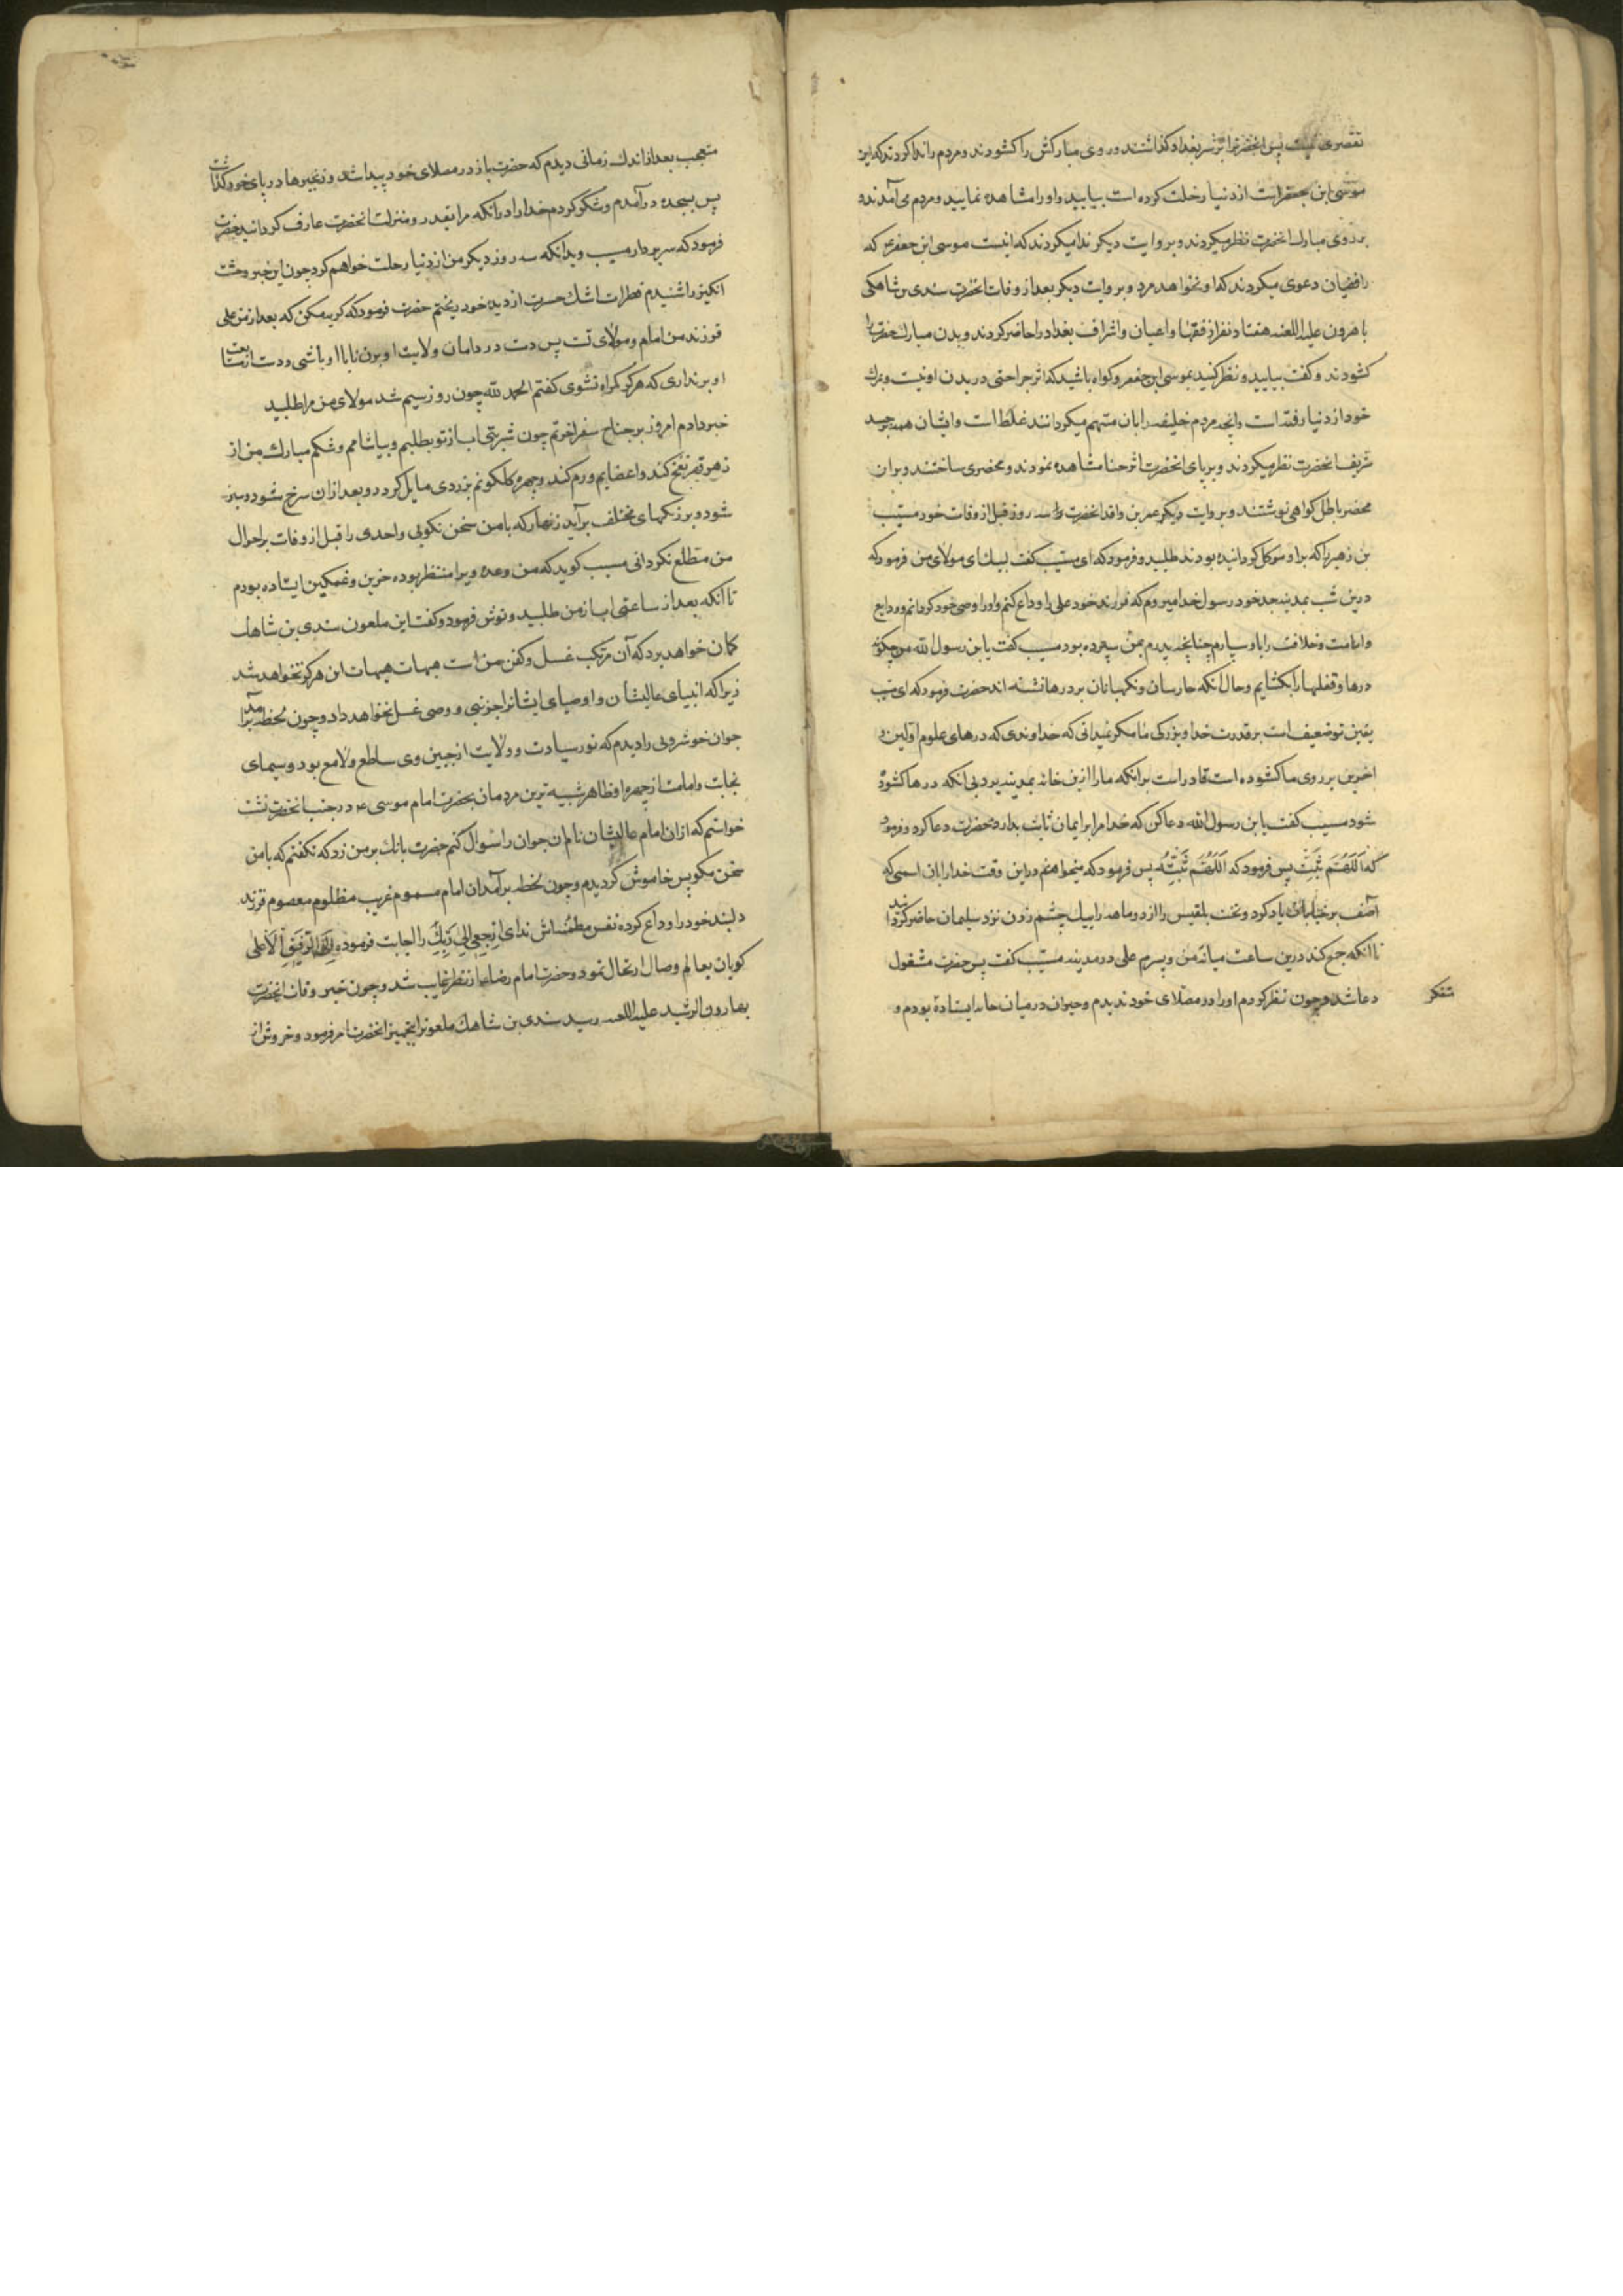 تقصیری نیست پس انحضرترا بر جسر بغداد کذاشتند و روی مبارکش را کشودند و مردم را ندا کردند که این
موسی ابن جعفر است از دنیا رحلت کرده است بیایید و او را مشاهده نمایید و مردم می آمدند و
بر روی مبارک انحضرت نظر میکردند و بروایت دیکر ندا میکردند که اینست موسی ابن جعفر ع که
رافضیان دعوی میکردند که او نخواهد مرد و بروایت دیکر بعد از وفات انحضرت سندی بن شاهک
با هرون علیه اللعنه هفتاد نفر از فقها و اعیان و اشراف بغداد را حاضر کردند و بدن مبارک حضرت را
کشودند و کفت بیایید و نظر کنید بموسی ابن جعفر و کواه باشید که اثر جراحتی در بدن او نیست و بمرک
خود از دنیا رفته است و انچه مردم خلیفه را بان متهم میکردانند غلط است و ایشان همه بر جسد
شریف انحضرت نظر میکردند و بر پای انحضرت اثر حنا مشاهده نمودند و محضری ساختند و بران
محضر باطل کواهی نوشتند و بروایت دیکر عمر بن واقد انحضرت سه روز قبل از وفات خود مسیب
بن زهیر را که بر او موکل کردانیده بودند طلبید و فرمود که ای مسیب کفت لبیک ای مولای من فرمود که
درین شب بمدینه جد خود رسول خدا میروم که فرزند خود علی را وداع کنم و او را وصی خود کردانم و وداع
و امامت و خلافت را باو سپارم چنانچه پدرم بمن سپرده بود مسیب کفت یا بن رسول الله من چکونه
درها و قفلها را بکشایم و حال انکه حارسان و نکهبانان بر درها نشسته اند حضرت فرمود که ای مسیب
یقین تو ضعیف است بر قدرت خدا و بزرکی ما مکر نمیدانی که خداوندی که درهای علوم اولین و
اخرین بر روی ما کشوده است قادر است بر انکه ما را ازین خانه بمدینه برد بی انکه درها کشوده
شود مسیب کفت یا بن رسول الله دعا کن که خدا مرا بر ایمان ثابت بدارد حضرت دعا کرد و فرمود
که اَللّهُمَّ ثَبِّتْ پس فرمود که اَللّهُمَّ ثَبِّتْهُ پس فرمود که میخواهم درین وقت خدا را بان اسمی که
آصف برخیا بان یاد کرد و تخت بلقیس را از دو ماهه راه بیک چشم زدن نزد سلیمان حاضر کردانید
تا انکه جمع کند درین ساعت میانه من و پسرم علی در مدینه مسیب کفت پس حضرت مشغول
دعا شد و چون نظر کردم او را در مصلای خود ندیدم و حیران در میان خانه ایستاده بودم و
متفکر
متعجب بعد از اندک زمانی دیدم که حضرت باز در مصلای خود پیدا شد و زنجیرها در پای خود کذاشت
پس بسجده درآمدم و شکر کردم خدا را در انکه مرا بقدر و منزلت انحضرت عارف کردانید حضرت
فرمود که سر بردار مسیب و بدانکه سه روز دیکر من از دنیا رحلت خواهم کرد چون این خبر وحشت
انکیز را شنیدم قطرات اشک حسرت از دیده خود ریختم حضرت فرمود که کریه مکن که بعد از من علی
فرزند من امام و مولای تست پس دست در دامان ولایت او بزن تا با او باشی و دست از متابعت
او برنداری که هرکز کمراه نشوی کفتم الحمد لله چون روز سیم شد مولای من مرا طلبید
خبر دادم امروز بر جناح سفر اخرتم چون شربتی اب از تو بطلبم و بیاشامم و شکم مبارک من از
زهر قهر نفخ کند و اعضایم ورم کند و چهره کلکونم بزردی مایل کردد و بعد ازان سرخ شود و سبز
شود و برنکهای مختلف برآید زنهار که با من سخن نکویی و احدی را قبل از وفات بر احوال
من مطلع نکردانی مسیب کوید که من وعده ویرا منتظر بوده حزین و غمکین ایستاده بودم
تا آنکه بعد از ساعتی اب از من طلبید و نوش فرمود و کفت این ملعون سندی بن شاهک
کمان خواهد برد که آن مرتکب غسل و کفن من است هیهات هیهات این هرکز نخواهد شد
زیرا که انبیای عالیشان و اوصیای ایشانرا جز نبی و وصی غسل نخواهد داد و چون لحظه برآمد
جوان خوشرویی را دیدم که نور سیادت و ولایت از جبین وی ساطع و لامع بود و سیمای
نجابت و امامت از چهره او ظاهر شبیه ترین مردمان بحضرت امام موسی ع در جنب انحضرت نشست
خواستم که ازان امام عالیشان نام ان جوان را سوال کنم حضرت بانک بر من زد که نکفتم که با من
سخن مکو پس خاموش کردیدم و چون لحظه برآمد ان امام مسموم غریب مظلوم معصوم فرزند
دلبند خود را وداع کرده نفس مطمئنه اش ندای اِرْجِعِی اِلی رَبِّکِ را اجابت فرموده اِلَی الرَّفِیقِ الاَعلی
کویان بعالم وصال ارتحال نمود و حضرت امام رضا ع از نظر غایب شد و چون خبر وفات انحضرت
بهارون الرشید علیه اللعنه رسید سندی بن شاهک ملعونرا بتجهیز انحضرت امر فرمود و خروش از